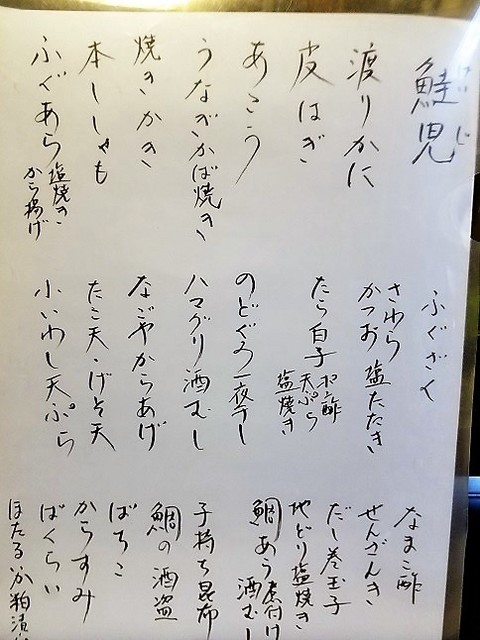 鮭児
けいじ
渡りかに
皮はぎ
あこう
うなぎかば焼き
焼きかき
本ししゃも
ふぐあら 塩焼き から揚げ
ふぐざく
さわら かつお 塩たたき
たら白子 ポン酢 天ぷら 塩焼き
のどぐろ一夜干し
ハマグリ酒むし
なごやからあげ
たこ天・げそ天
小いわし天ぷら
なまこ酢
せんざんき
だし巻玉子
地どり塩焼き
鯛あら 煮付け 酒むし
子持ち昆布
鯛の酒盗
ばちこ
からすみ
ばくらい
ほたるいか粕漬